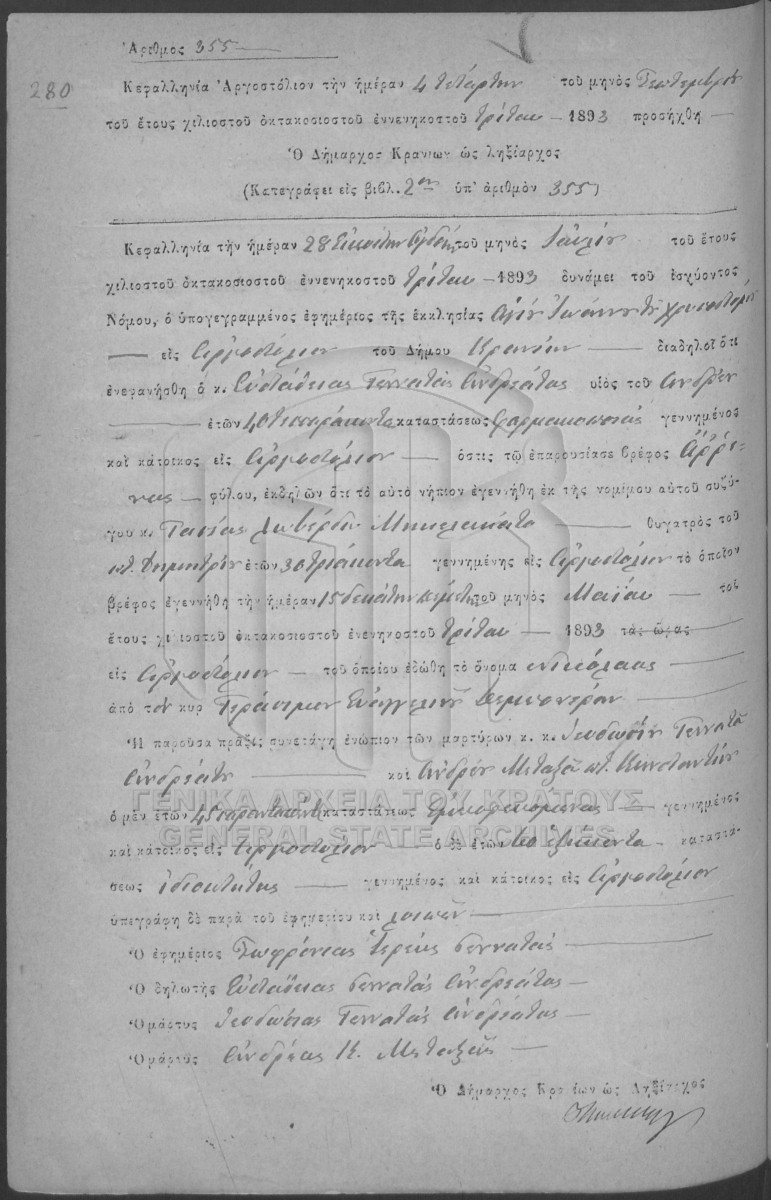 Ἀριθμος 355
280
Κεφαλληνία Ἀργοστόλιον τὴν ἡμέραν 4 τετάρτην τοῦ μηνὸς Σεπτεμβρίου
τοῦ ἔτους χιλιοστοῦ ὀκτακοσιοστοῦ ἐννενηκοστοῦ τρίτου – 1893 προσήχθη —
Ὁ Δήμαρχος Κρανίων ὡς ληξίαρχος
(Κατεγράφει εἰς βιβλ. 2ον ὑπ' ἀριθμὸν 355)
Κεφαλληνία τὴν ἡμέραν 28 Εἰκοστὴν ὀγδόην τοῦ μηνὸς Ἰουλίου τοῦ ἔτους
χιλιοστοῦ ὀκτακοσιοστοῦ ἐννενηκοστοῦ τρίτου – 1893 δυνάμει τοῦ ἰσχύοντος
Νόμου, ὁ ὑπογεγραμμένος ἐφημέριος τῆς ἐκκλησίας Ἁγίου Ἰωάννου τοῦ Χρυσοστόμου
— εἰς Ἀργοστόλιον τοῦ Δήμου Κρανίων — διαδηλοῖ ὅτι
ἐνεφανήσθη ὁ κ. Εὐστάθιος Γεννατᾶς Ἀνδρεάτος υἱὸς τοῦ Ἀνδρέου
— ἐτῶν 40 τεσσαράκοντα καταστάσεως φαρμακοποιὸς γεννημένος
καὶ κάτοικος εἰς Ἀργοστόλιον — ὅστις τῷ ἐπαρουσίασε βρέφος ἄρρε-
νος – φύλου, ἐκδηλῶν ὅτι τὸ αὐτὸ νήπιον ἐγεννήθη ἐκ τῆς νομίμου αὐτοῦ συζύ-
γου κ. Τασίας Λοβέρδου Μιχαλακάτο — θυγατρὸς τοῦ
ποτ. Δημητρίου ἐτῶν 30 τριάκοντα γεννημένης εἰς Ἀργοστόλιον τὸ ὁποῖον
βρέφος ἐγεννήθη τὴν ἡμέραν 15 δεκάτην πέμπτην τοῦ μηνὸς Μαΐου — τοῦ
ἔτους χιλιοστοῦ ὀκτακοσιοστοῦ ἐνενηκοστοῦ τρίτου — 1893 τὰς ὥρας
εἰς Ἀργοστόλιον — τοῦ ὁποίου ἐδώθη τὸ ὄνομα Νικόλαος —
ἀπὸ τὸν κυρ Γεράσιμον Εὐαγγελινοῦ —
Ἡ παροῦσα πρᾶξις συνετάγη ἐνώπιον τῶν μαρτύρων κ. κ. Θεοδωσίου Γεννατᾶ
Ἀνδρεάτου — καὶ Ἀνδρέου Μεταξᾶ ποτ. Κωνσταντίνου
ὁ μὲν ἐτῶν καταστάσεως — γεννημένος
καὶ κάτοικος εἰς Ἀργοστόλιον ὁ δὲ ἐτῶν 60 ἑξήκοντα – καταστά-
σεως ἰδιοκτήτης — γεννημένος καὶ κάτοικος εἰς Ἀργοστόλιον
ὑπεγράφη δὲ παρὰ τοῦ ἐφημερίου καὶ λοιπῶν —
Ὁ ἐφημέριος Σωφρόνιος Ἱερεὺς Γεννατᾶς —
Ὁ δηλωτὴς Εὐστάθιος Γεννατᾶς Ἀνδρεάτος —
Ὁ μάρτυς Θεοδώσιος Γεννατᾶς Ἀνδρεάτος —
Ὁ μάρτυς Ἀνδρέας Κ. Μεταξᾶς —
Ὁ Δήμαρχος Κρανίων ὡς Ληξίαρχος
ΓΕΝΙΚΑ ΑΡΧΕΙΑ ΤΟΥ ΚΡΑΤΟΥΣ
GENERAL STATE ARCHIVES